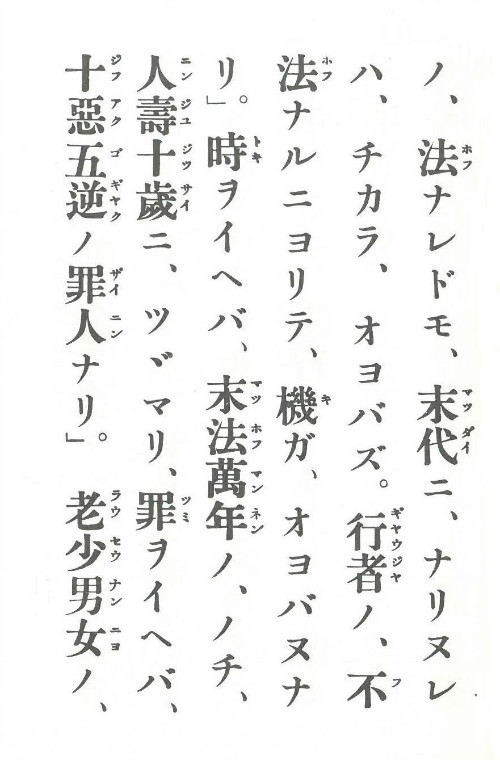 ノ、法ナレドモ、末代ニ、ナリヌレ
ハ、チカラ、オヨバズ。行者ノ、不
法ナルニヨリテ、機ガ、オヨバヌナ
リ。」時ヲイヘバ、末法萬年ノ、ノチ、
人壽十歲ニ、ツヾマリ、罪ヲイヘバ、
十惡五逆ノ罪人ナリ。」老少男女ノ、